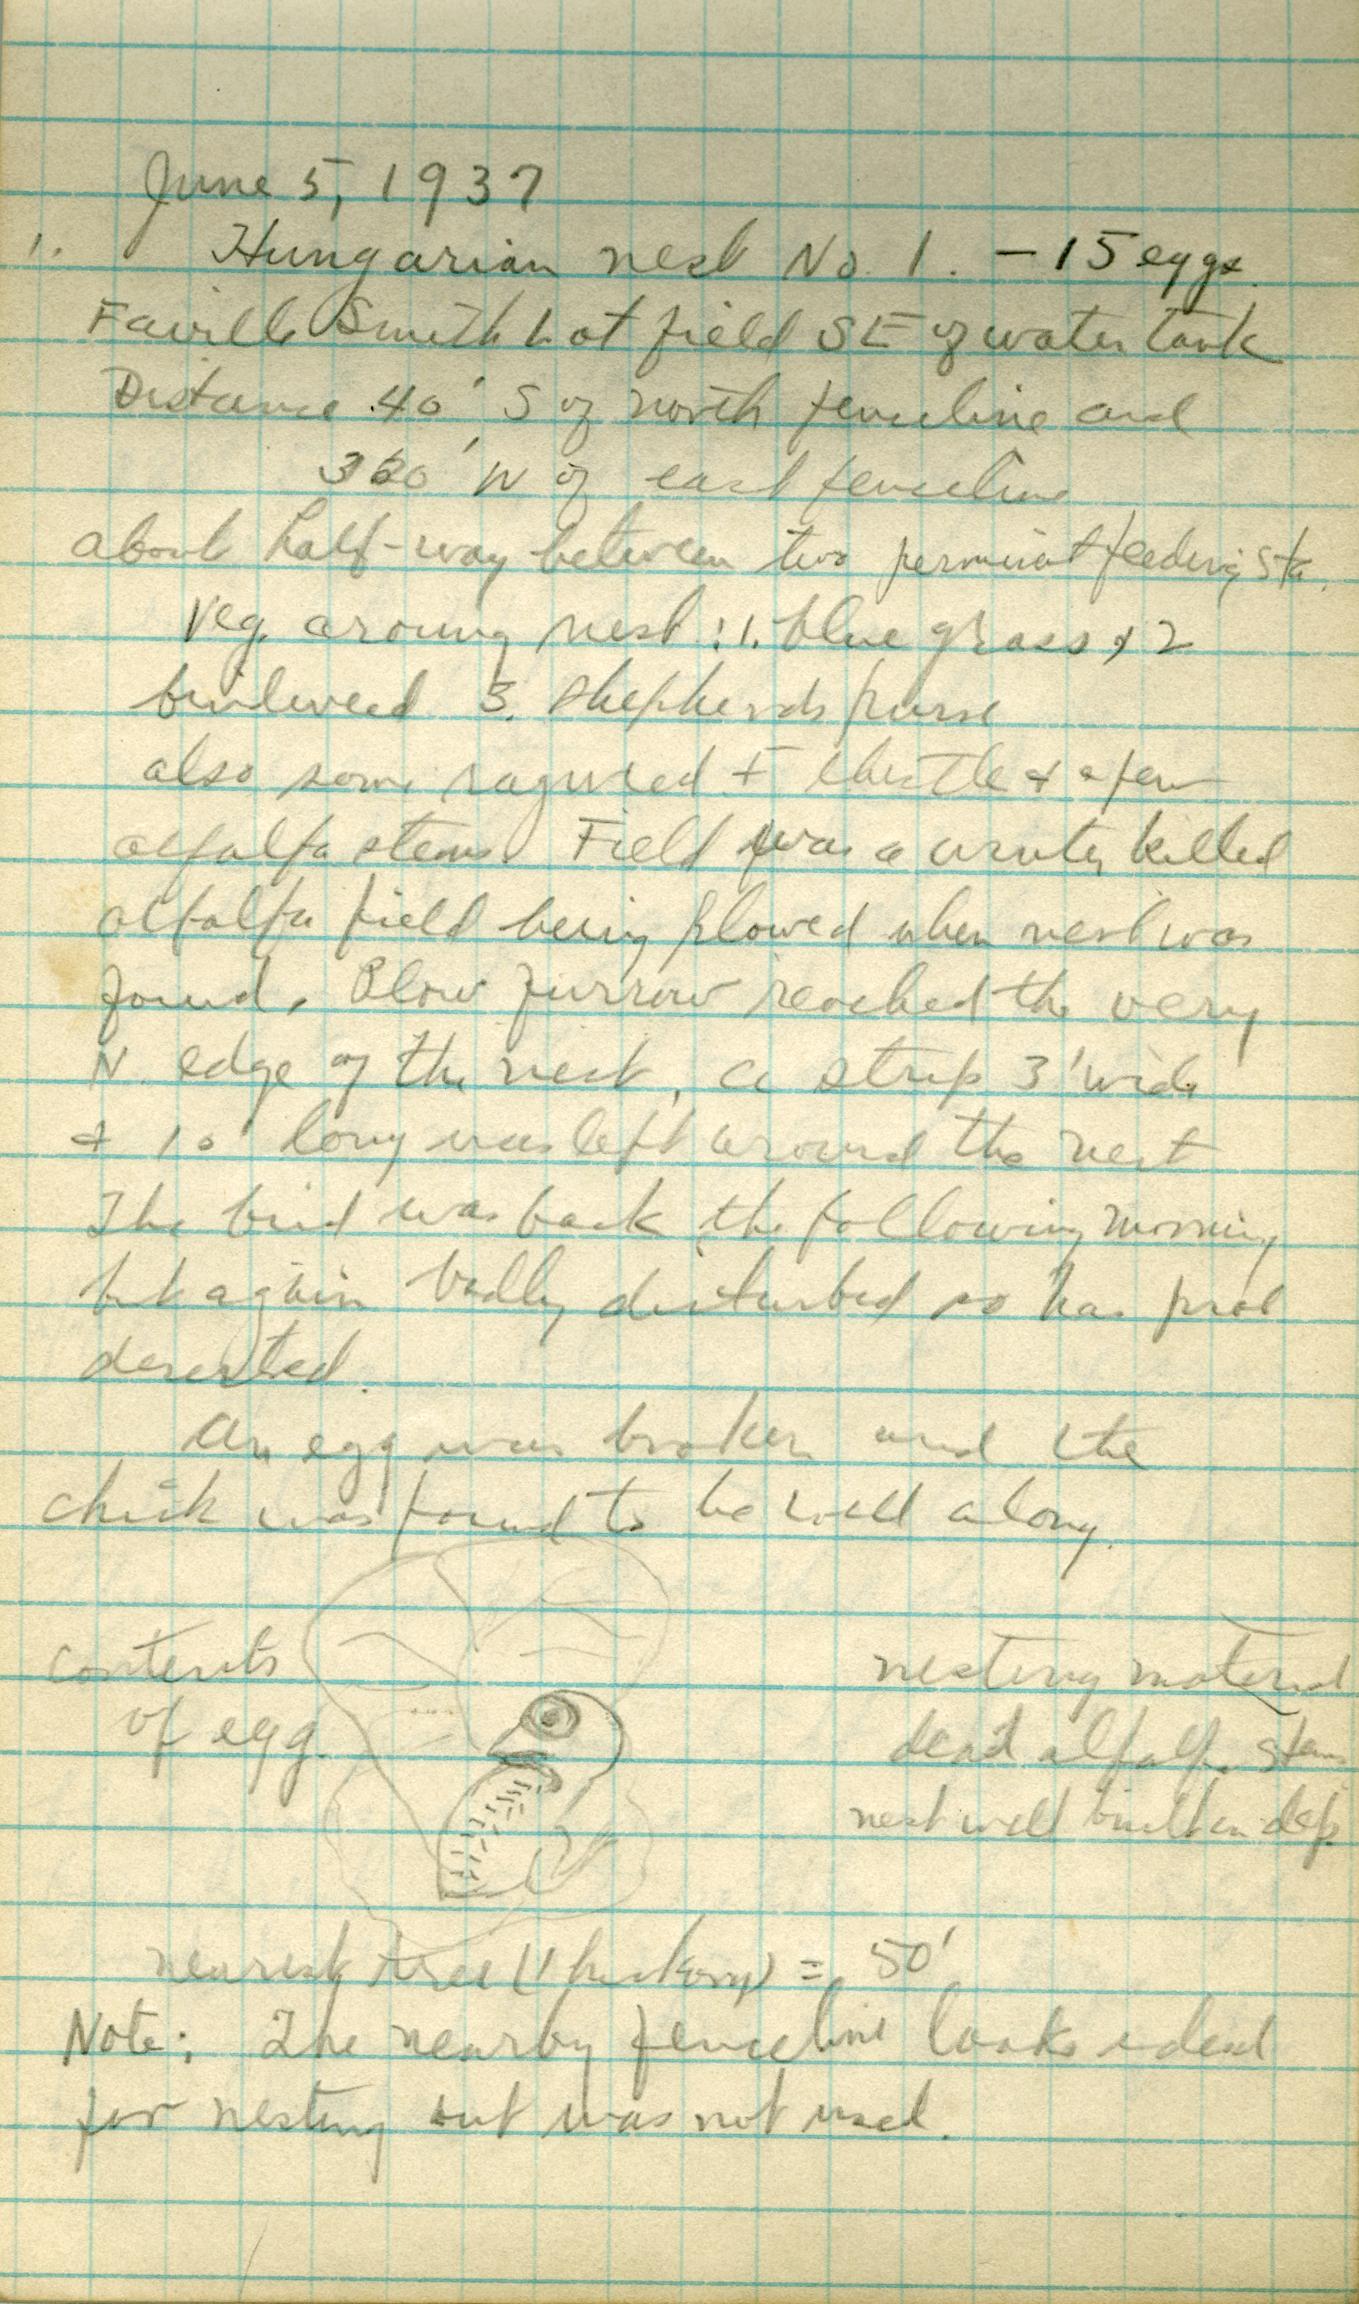 June 5, 1937
1. Hungarian nest No. 1. - 15 eggs.
Faville Smith Lot field SE of water tank
Distance 40' S of north fenceline and
W of east fenceline
about half-way between two feeding sta.
Veg. around nest: 1. blue grass, 2
3. shepherds purse
also some ragweed + thistle + a few
alfalfa stems. Field was a winter killed
alfalfa field being plowed when nest was
found. Plow furrow reached the very
N. edge of the nest, a strip 3' wide
+ 10' long was left around the nest
The bird was back the following morning
but again badly disturbed so has prob
deserted.
An egg was broken and the
chick was found to be well along.
contents
of egg.
nesting material
dead alfalfa stems
nest well built in dep.
nearest tree (1 hickory) = 50'
Note: The nearby fenceline looks ideal
for nesting but was not used.